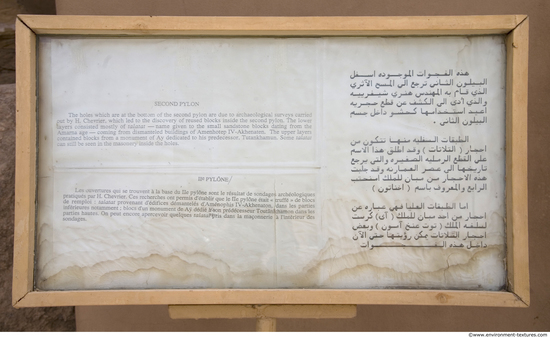 SECOND PYLON
The holes which are at the bottom of the second pylon are due to archaeological surveys carried
out by H. Chevrier, which led to the discovery of reused blocks inside the second pylon. The lower
layers consisted mostly of talatat — name given to the small sandstone blocks dating from the
Amarna age — coming from dismantled buildings of Amenhotep IV-Akhenaton. The upper layers
contained blocks from a monument of Ay dedicated to his predecessor, Tutankhamun. Some talatat
can still be seen in the masonry inside the holes.
IIe PYLÔNE
Les ouvertures qui se trouvent à la base du IIe pylône sont le résultat de sondages archéologiques
pratiqués par H. Chevrier. Ces recherches ont permis d'établir que le IIe pylône était « truffé » de blocs
de remploi : talatat provenant d'édifices démontés d'Aménophis IV-Akhenaton, dans les parties
inférieures notamment ; blocs d'un monument de Ay dédié à son prédécesseur Toutankhamon dans les
parties hautes. On peut encore apercevoir quelques talatat pris dans la maçonnerie à l'intérieur des
sondages.
هذه الفجوات الموجوده اسفل
البيلون الثانى ترجع الى المسح الأثرى
الذى قام به المهندس هنرى شيفرييه
والذى أدى الى الكشف عن قطع حجريه
أعيد استخدامها كحشو داخل جسم
البيلون الثانى .
الطبقات السفليه منها تتكون من
احجار ( التلاتات ) وقد اطلق هذا الاسم
على القطع الرمليه الصغيره والتى يرجع
تاريخها الى عصر العمارنه وقد جلبت
هذه الاحجار من مبان للملك امنحتب
الرابع والمعروف باسم ( اخناتون )
اما الطبقات العليا فهى عباره عن
احجار من أحد مبان للملك ( آى ) كرست
لسلفه الملك ( توت عنخ آمون ) وبعض
احجار التلاتات يمكن رؤيتها حتى الآن
داخل هذه الفجوات
© www.environment-textures.com